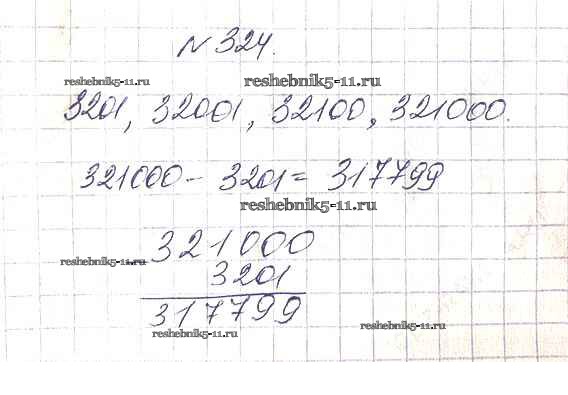 № 324.
reshebnik5-11.ru reshebnik5-11.ru
3201, 32001, 32100, 321000.
321000 - 3201 = 317799
reshebnik5-11.ru
321000
reshebnik5-11.ru - 3201
317799
reshebnik5-11.ru reshebnik5-11.ru